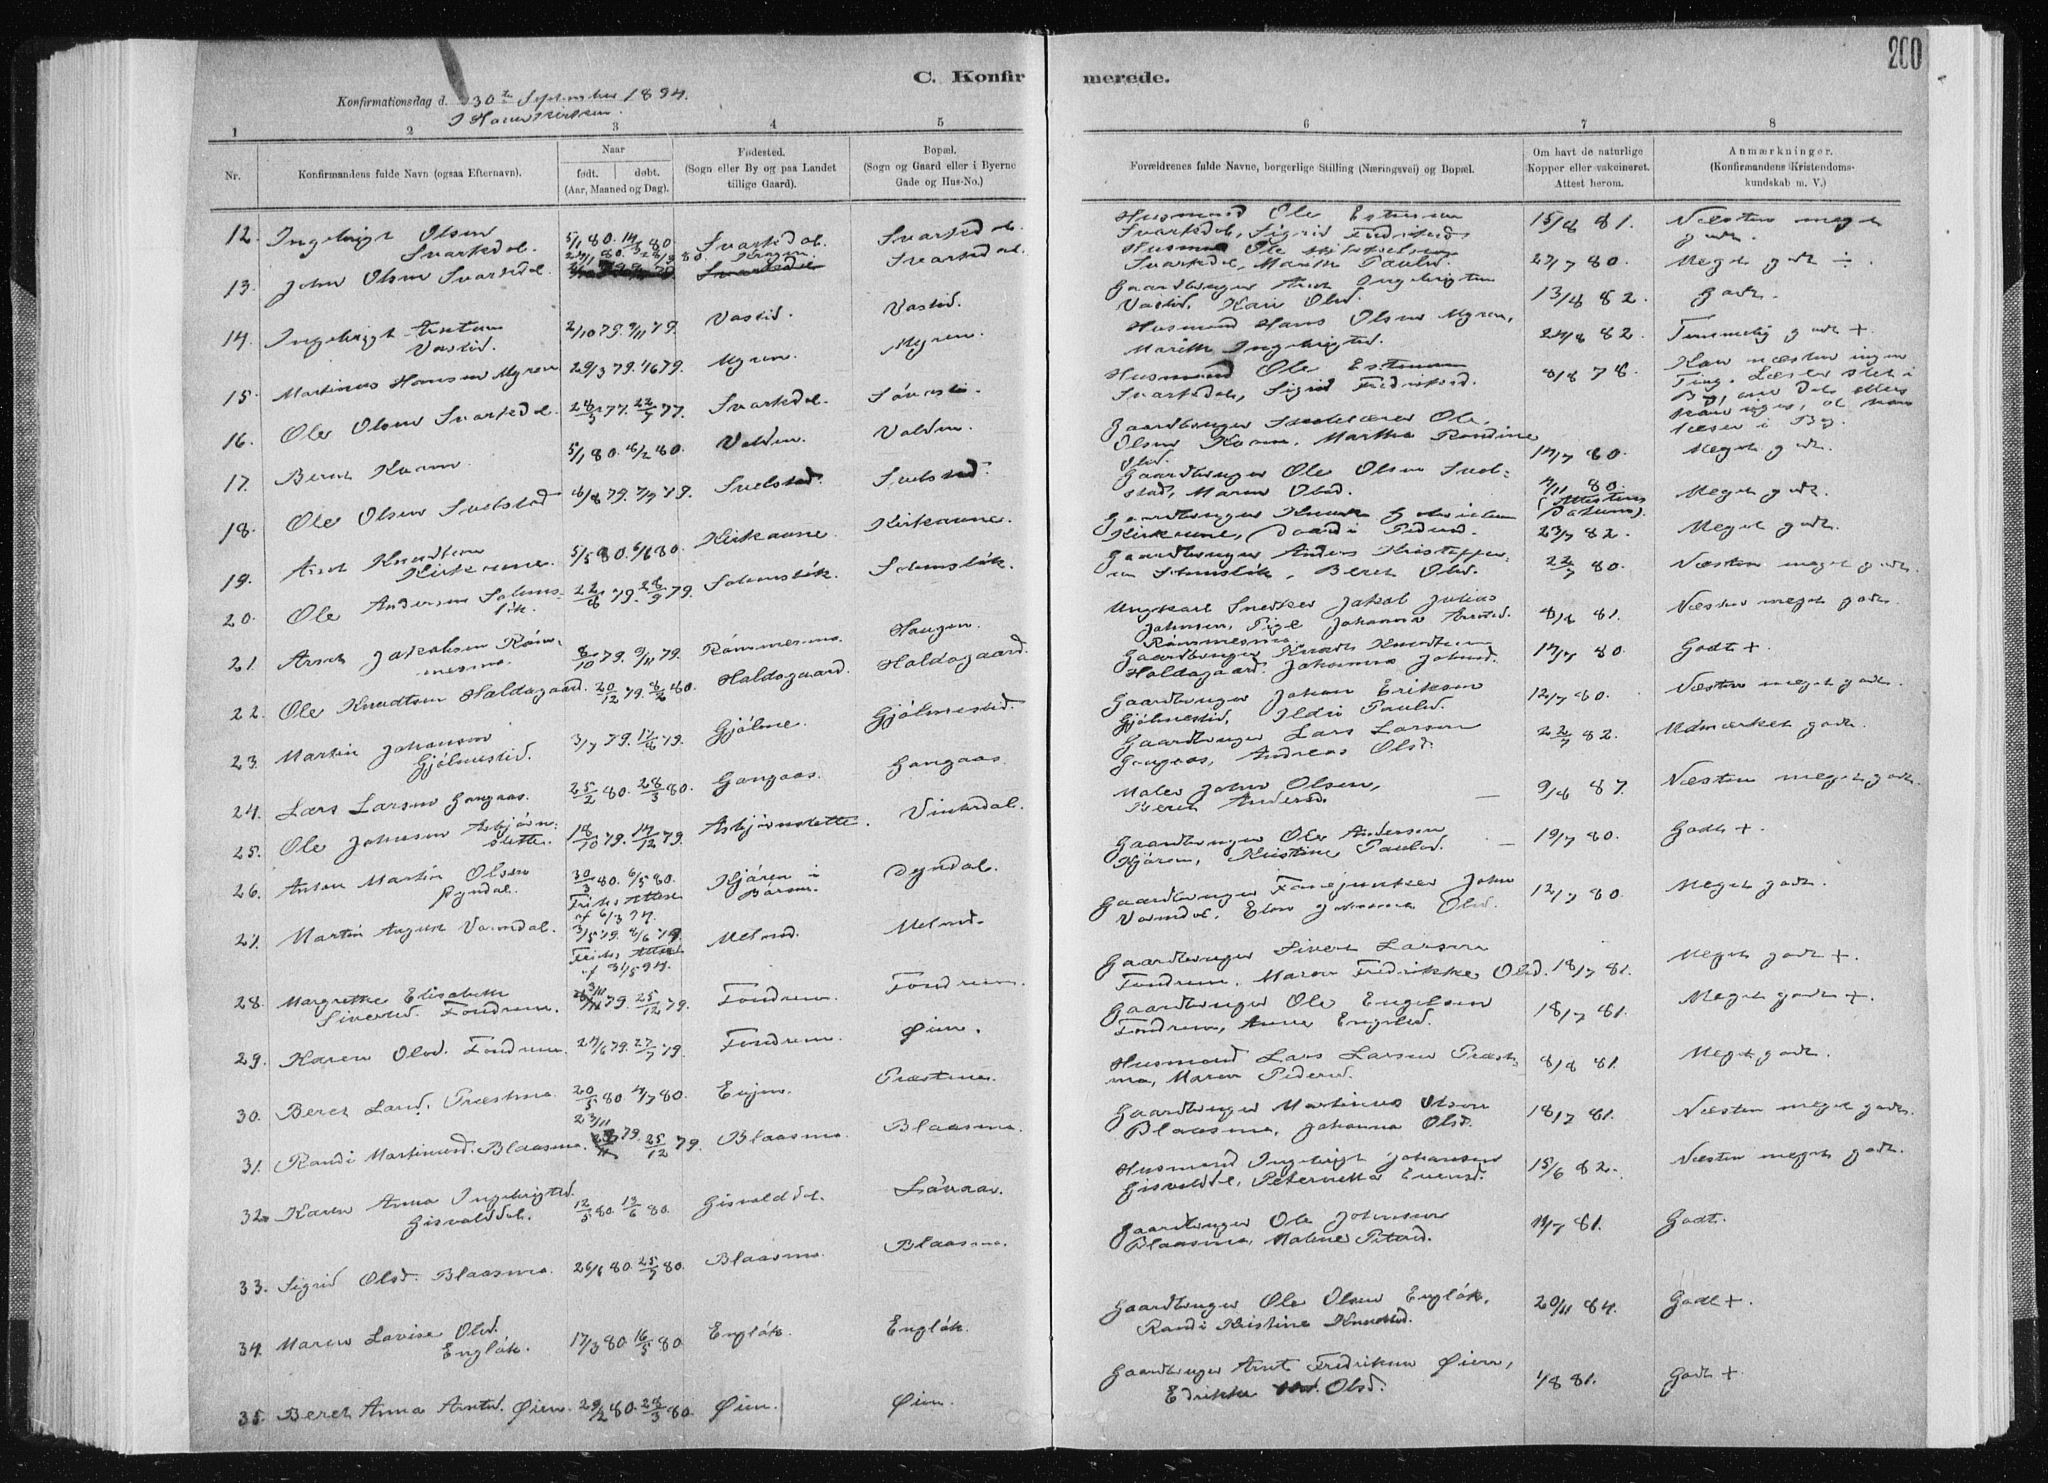 200
C. Konfirmerede.
Konfirmationsdag d. 30te September 1894.
1 2 3 4 5 6 7 8
Nr.
Konfirmandens fulde Navn (ogsaa Efternavn).
Naar
født. døbt.
(Aar, Maaned og Dag).
Fødested.
(Sogn eller By og paa Landet
tillige Gaard).
Bopæl.
(Sogn og Gaard eller i Byerne
Gade og Hus-No.)
Forældrenes fulde Navne, borgerlige Stilling (Næringsvei) og Bopæl.
Om havt de naturlige
Kopper eller vakcineret.
Attest herom.
Anmærkninger.
(Konfirmandens Kristendoms-
kundskab m. V.)
12. Ingebrigt Olsen Svartdal. 5/1 80. 14/3 80 Svartdal. Svartdal. Husmand Ole Estensen Svartdal, Sigrid Fredriksd. 15/8 81. Næsten meget godt.
13. John Olsen Svartdal. Svartdal. Husmand Ole Svartdal, Marith Paulsd. 27/7 80. Meget godt ÷.
14. Ingebrigt Arntsen Vastid. 2/10 79. 9/11 79. Vastid. Vastid. Gaardbruger Arnt Ingebrigtsen Vastid, Kari Olsd. 13/8 82. Godt.
15. Martinus Hansen Myren 29/3 79. 1/6 79. Myren. Myren. Husmand Hans Olsen Myren, Marith Ingebrigtsd. 24/8 82. Temmelig godt +
16. Ole Olsen Svartdal. 28/3 77. 22/7 77. Svartdal. Husmand Ole Estensen Svartdal, Sigrid Fredriksd. 8/8 78. Kan næsten ingen Ting. Læser slet i Bog,
17. Berent Kaarn 5/1 80. 8/2 80. Volden. Volden. Gaardbruger Ole Olsen Kaarn, Martha Randine Olsd. 14/7 80. Meget godt.
18. Ole Olsen Svelstad 6/8 79. 7/9 79. Svelstad. Svelstad. Gaardbruger Ole Olsen Svelstad, Maren Olsd. 7/11 80. (Attestens Datum). Meget godt.
19. Arnt Knudtsen Kirkaune. 5/5 80. 6/6 80. Kirkaune. Kirkaune. Gaardbruger Knudt Kirkaune, Pedersd. 23/7 82. Meget godt.
20. Ole Andersen Solemsløk. 22/8 79. 28/9 79. Solemsløk. Solemsløk. Gaardbruger Anders Kristoffersen Solemsløk, Beret Olsd. 22/7 80. Næsten meget godt.
21. Arnt Jakobsen Rømmesmo. 8/10 79. 9/11 79. Rømmesmo. Haugen. Ungkarl Snedker Jakob Julius Johnsen, Pige Johanna Arntsd. Rømmesmo. 8/8 81. Næsten meget godt.
22. Ole Knudtsen Haldogaard. 20/12 79. 8/2 80. Haldogaard. Haldogaard. Gaardbruger Knudt Knudtsen Haldogaard. Johanna Johnsd. 14/7 80. Godt +.
23. Martin Johansen Gjølmestid. 3/7 79. 17/8 79. Gjølme. Gjølmestid. Gaardbruger Johan Eriksen Gjølmestid, Ildri Paulsd. 12/7 80. Næsten meget godt.
24. Lars Larsen Gangaas. 25/2 80. 28/3 80. Gangaas. Gangaas. Gaardbruger Lars Larsen Gangaas, Andrea Olsd. 22/7 82. Udmærket godt.
25. Ole Johnsen Asbjørnslette. 18/10 79. 14/12 79. Asbjørnslette. Vinterdal. Maler John Olsen, Beret Andersd. — 9/6 87. Næsten meget godt.
26. Anton Martin Olsen Dyndal. 30/3 80. 6/5 80. Attest af 6/3 94. Kjøren i Børsen. Dyndal. Gaardbruger Ole Andersen Kjøren, Kristine Paulsd. — 19/7 80. Godt +.
27. Martin August Vormdal. 3/5 79. 8/6 79. Attest af 31/5 94. Melend. Melend. Gaardbruger Fanejunker John Vormdal, Elen Johanna Olsd. 12/7 80. Meget godt.
28. Margrethe Elisabeth Sivertsd. Fandrem. 79. 25/12 79. Fandrem. Fandrem. Gaardbruger Sivert Larsen Fandrem, Maren Fredrikke Olsd. 18/7 81. Meget godt +.
29. Karen Olsd. Fandrem. 24/6 79. 27/7 79. Fandrem. Øien. Gaardbruger Ole Engelsen Fandrem, Anne Engelsd. 18/7 81. Meget godt +.
30. Beret Larsd. Præstmo. 20/5 80. 4/7 80. Evjen. Præstmo. Husmand Lars Larsen Præstmo, Maren Pedersd. 8/8 81. Meget godt.
31. Randi Martinusd. Blaasmo. 23/11 79. 25/12 79. Blaasmo. Blaasmo. Gaardbruger Martinus Olsen Blaasmo, Johanna Olsd. 18/7 81. Næsten meget godt.
32. Karen Anna Ingebrigtsd. Gisvolddal. 12/5 80. 13/6 80. Gisvolddal. Husmand Ingebrigt Johansen Gisvolddal, Peternella Evensd. 15/6 82. Næsten meget godt.
33. Sigrid Olsd. Blaasmo. 26/6 80. 25/7 80. Blaasmo. Blaasmo. Gaardbruger Ole Johnsen Blaasmo, Malene 11/7 81. Godt.
34. Maren Lovise Olsd. Engløk. 17/3 80. 16/5 80 Engløk. Engløk. Gaardbruger Ole Olsen Engløk, Randi Kristine Knudtsd. 20/11 84. Godt +.
35. Beret Anna Arntsd. Øien. 29/2 80. 28/3 80. Øien. Øien. Gaardbruger Arnt Fredriksen Øien, Edrikke Olsd. 1/8 81. Godt +